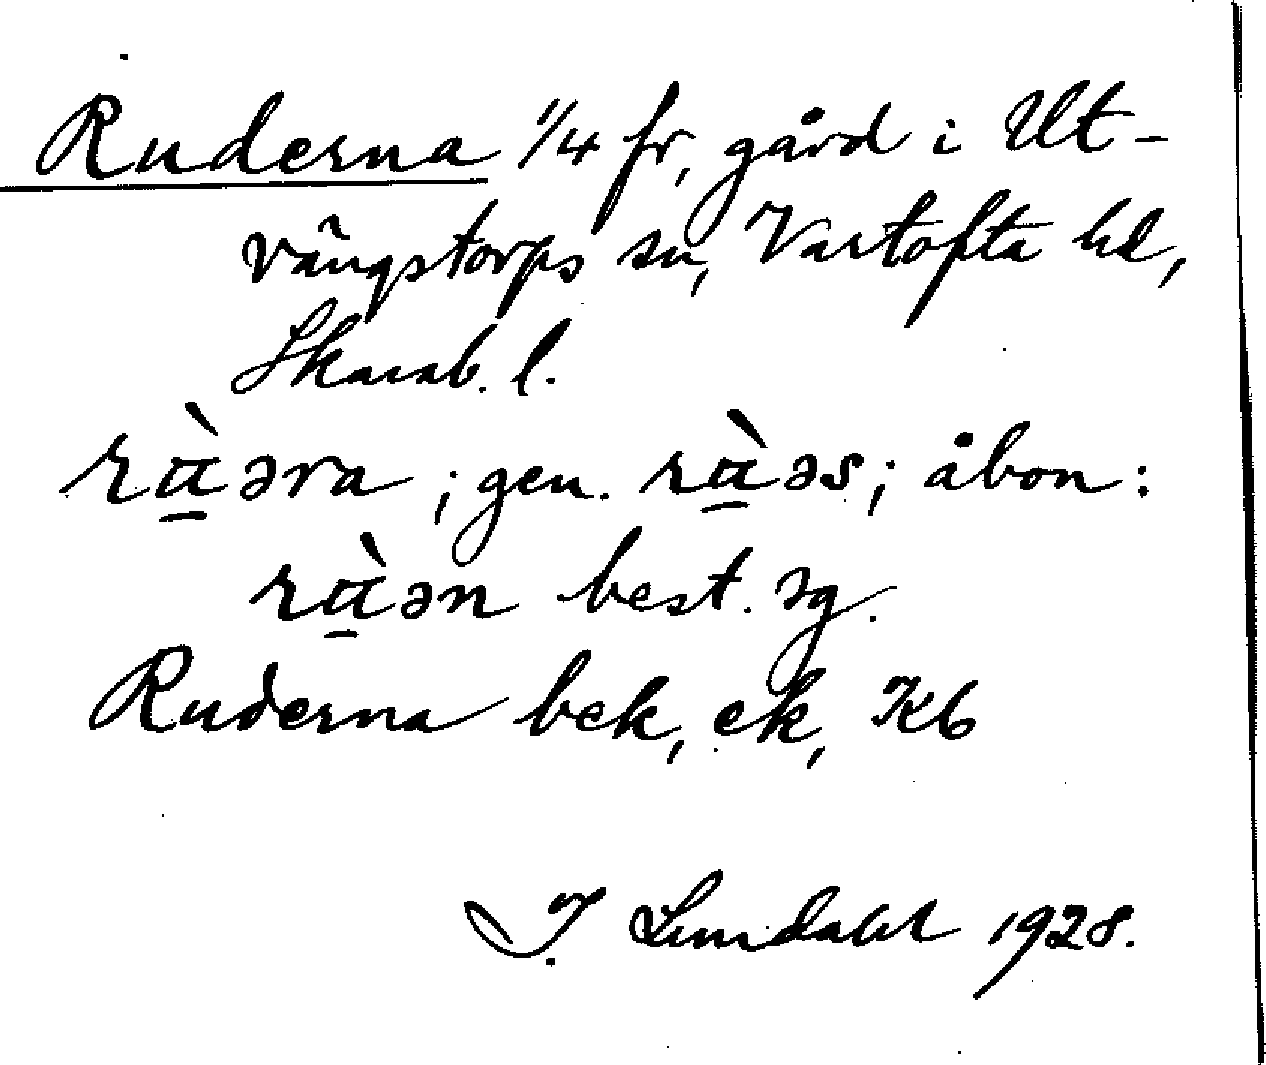 Ruderna 1/4 fr, gård i Ut-
vängstorps sn, Vartofta hd,
Skarab. l.
rὰ̱əra ; gen. rὰ̱əs ; åbon :
rὰ̱ən best. sg.
Ruderna bek, ek, Kb
J. Lundahl 1928.